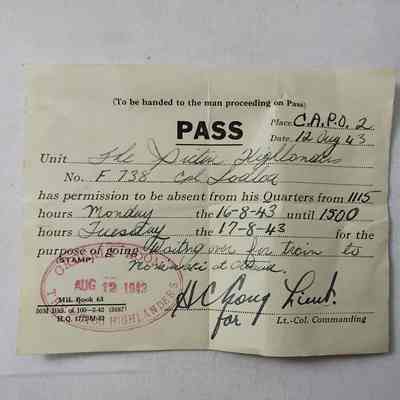 (To be handed to the man proceeding on Pass)
PASS
Place C.A.P.O. 2
Date 12 Aug 43
Unit The Pictou Highlanders
No. F 738 Cpl
has permission to be absent from his Quarters from 1115
hours Monday the 16-8-43 until 1500
hours Tuesday the 17-8-43 for the
purpose of going Waiting over for train to
at
(STAMP)
AUG 12 1943
HIGHLANDERS
Mil. Book 63
H.Q. 1772-M-33
H C Lieut.
for Lt.-Col. Commanding